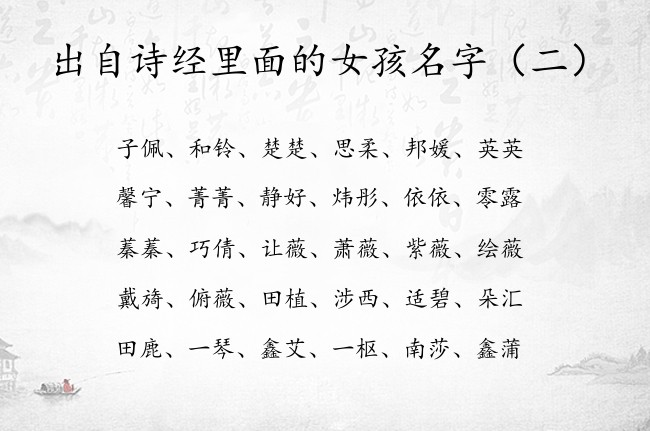 出自诗经里面的女孩名字（二）
子佩、和铃、楚楚、思柔、邦媛、英英
馨宁、菁菁、静好、炜彤、依依、零露
蓁蓁、巧倩、让薇、萧薇、紫薇、绘薇
戴旖、俯薇、田植、涉西、适碧、朵汇
田鹿、一琴、鑫艾、一枢、南莎、鑫蒲